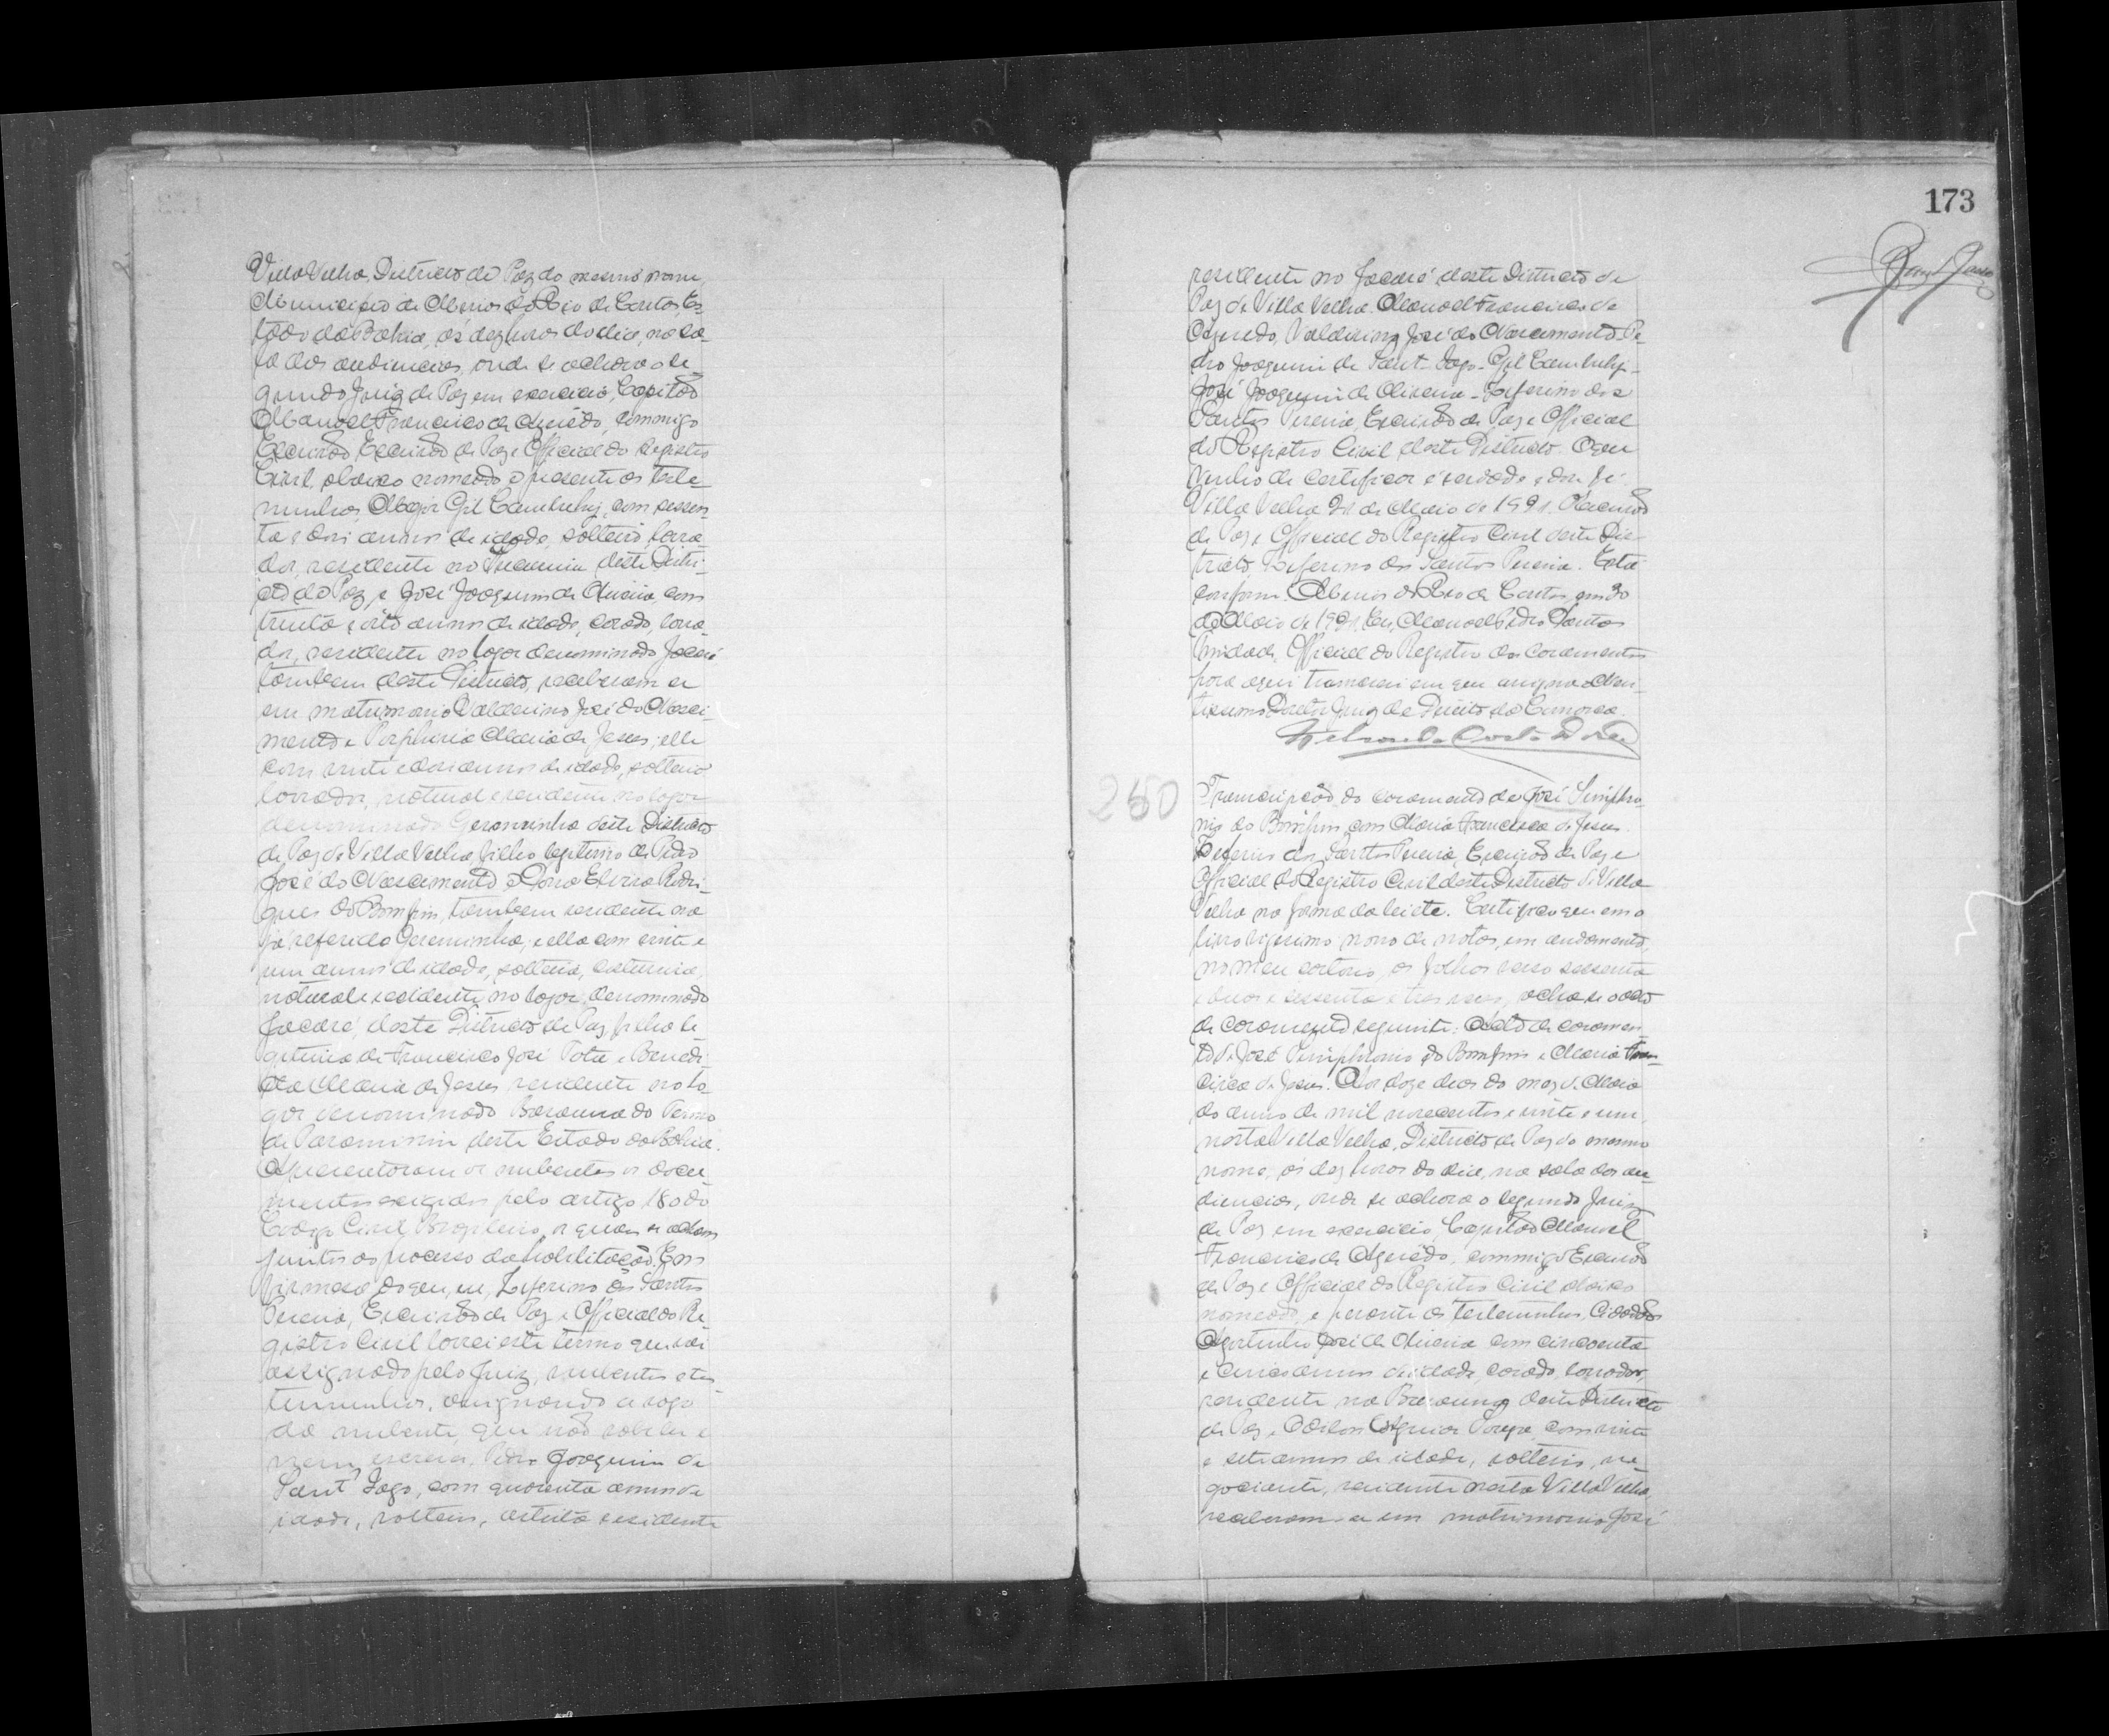 Villa Velha, Districto de Paz do mesmo nome,
Municipio de Minas do Rio de Contas, Es-
tado da Bahia, ás dez horas do dia, na sa-
la das audiencias, onde se achava o se-
gundo Juiz de Paz em exercicio, Capitão
Manoel Francisco de Azevêdo, commigo
Escrivão, Escrivão de Paz e Official do Registro
Civil, abaixo nomeado e presente as teste-
munhas, Major Gil Cambuhy, com sessen-
ta e dois annos de idade, solteiro, lavra-
dor, residente no deste Distri-
cto de Paz, e José Joaquim de Oliveira, com
trinta e oito annos de idade, casado, lavra-
dor, residente no logar denominado Jacaré
tambem deste Districto, receberam-se
em matrimonio Valderino José do Nasci-
mento e Porphiria Maria de Jesus; elle
com vinte e dois annos de idade, solteiro
lavrador, natural e residente no logar
denominado Geremunho deste Districto
de Paz de Villa Velha, filho legitimo de Pedro
José do Nascimento e Dona Elvira Rodri-
gues do Bomfim, tambem residente no
já referido Geremunho, e ella com vinte e
um annos de idade, solteira, costureira,
natural e residente no logar denominado
Jacaré, deste Districto de Paz, filha le-
gitima de Francisco José Pota e Benedi-
cta Maria de Jesus residente no lo-
gar denominado Barauna do Termo
de Paramirim deste Estado da Bahia.
Apresentaram os nubentes os docu-
mentos exigidos pelo artigo 180 do
Codigo Civil Brazileiro, os quaes se acham
juntos ao processo da habilitação. Em
firmeza do que, eu, Zeferino dos Santos
Pereira, Escrivão de Paz e Official do Re-
gistro Civil lavrei este termo que vai
assignado pelo Juiz, nubentes e tes-
temunhas, assignando a rogo
da nubente, que não sabe ler e
nem escrever, Pedro Joaquim de
Sant'Iago, com quarenta annos de
idade, solteiro, artista residente
173
residente no Jacaré deste Districto de
Paz de Villa Velha. Manoel Francisco de
Azevedo, Valderino José do Nascimento. Pe-
dro Joaquim de Sant-Iago. Gil Cambuhy-
José Joaquim de Oliveira - Zeferino dos
Santos Pereira, Escrivão de Paz e Official
do Registro Civil deste Districto. O que
venho de certificar é verdade e dou fé.
Villa Velha de Maio de 1921. O Escrivão
de Paz e Official do Registro Civil deste Dis-
tricto, Zeferino dos Santos Pereira. Está
conforme. Minas do Rio de Contas, em 30
de Maio de 1921. Eu, Manoel Pedro Santos
Trindade, Official do Registro dos Casamentos
para aqui transcrevi em que assigna o Meri-
tissimo Doutor Juiz de Direito da Comarca.
250
Transcripção do casamento de José Simphro-
nio do Bomfim com Maria Francisca de Jesus.
Zeferino dos Santos Pereira, Escrivão de Paz e
Official do Registro Civil deste Districto de Villa
Velha na forma da lei etc. Certifico que em o
livro vigesimo nono de notas, em andamento,
no meu cartorio, as folhas verso sessenta
e duas e sessenta e tres verso, acha-se o acto
de casamento seguinte: Acto de casamen-
to de José Simphronio do Bomfim e Maria Fran-
cisca de Jesus. Aos doze dias do mez de Maio
do anno de mil novecentos e vinte e um,
nesta Villa Velha, Districto de Paz do mesmo
nome, ás dez horas do dia, na sala das au-
diencias, onde se achava o segundo Juiz
de Paz em exercicio, Capitão Manoel
Francisco de Azevêdo, commigo Escrivão
de Paz e Official do Registro Civil abaixo
nomeado, e perante as testemunhas, Cidadãos
Agostinho José de Oliveira com cincoenta
e cinco annos de idade, casado, lavrador,
residente na Barauna deste Districto
de Paz e Odilon com vinte
e sete annos de idade, solteiro, ne-
gociante, residente nesta Villa Velha,
receberam-se em matrimonio José